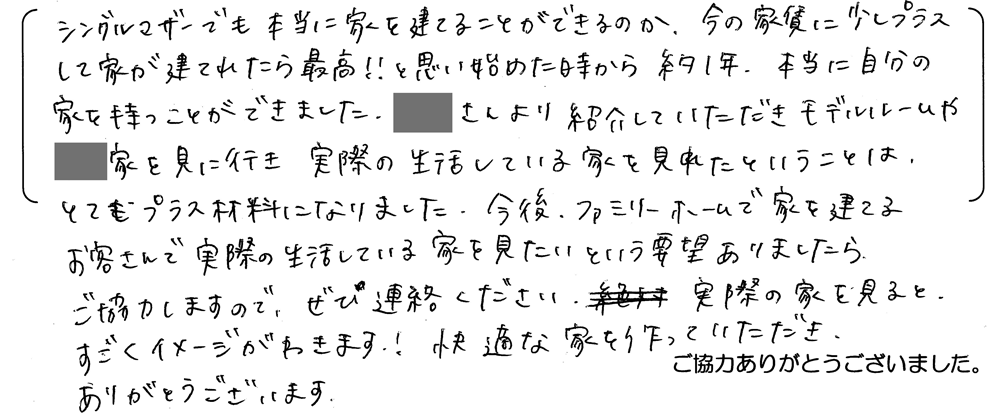 シングルマザーでも本当に家を建てることができるのか、今の家賃に少しプラス
して家が建てれたら最高!!と思い始めた時から約1年、本当に自分の
家を持つことができました。さんより紹介していただきモデルルームや
家を見に行き実際の生活している家を見れたということは、
とてもプラス材料になりました。今後、ファミリーホームで家を建てる
お客さんで実際の生活している家を見たいという要望ありましたら
ご協力しますので、ぜひ連絡ください。実際の家を見ると、
すごくイメージがわきます!快適な家を作っていただき、
ご協力ありがとうございました。
ありがとうございます。